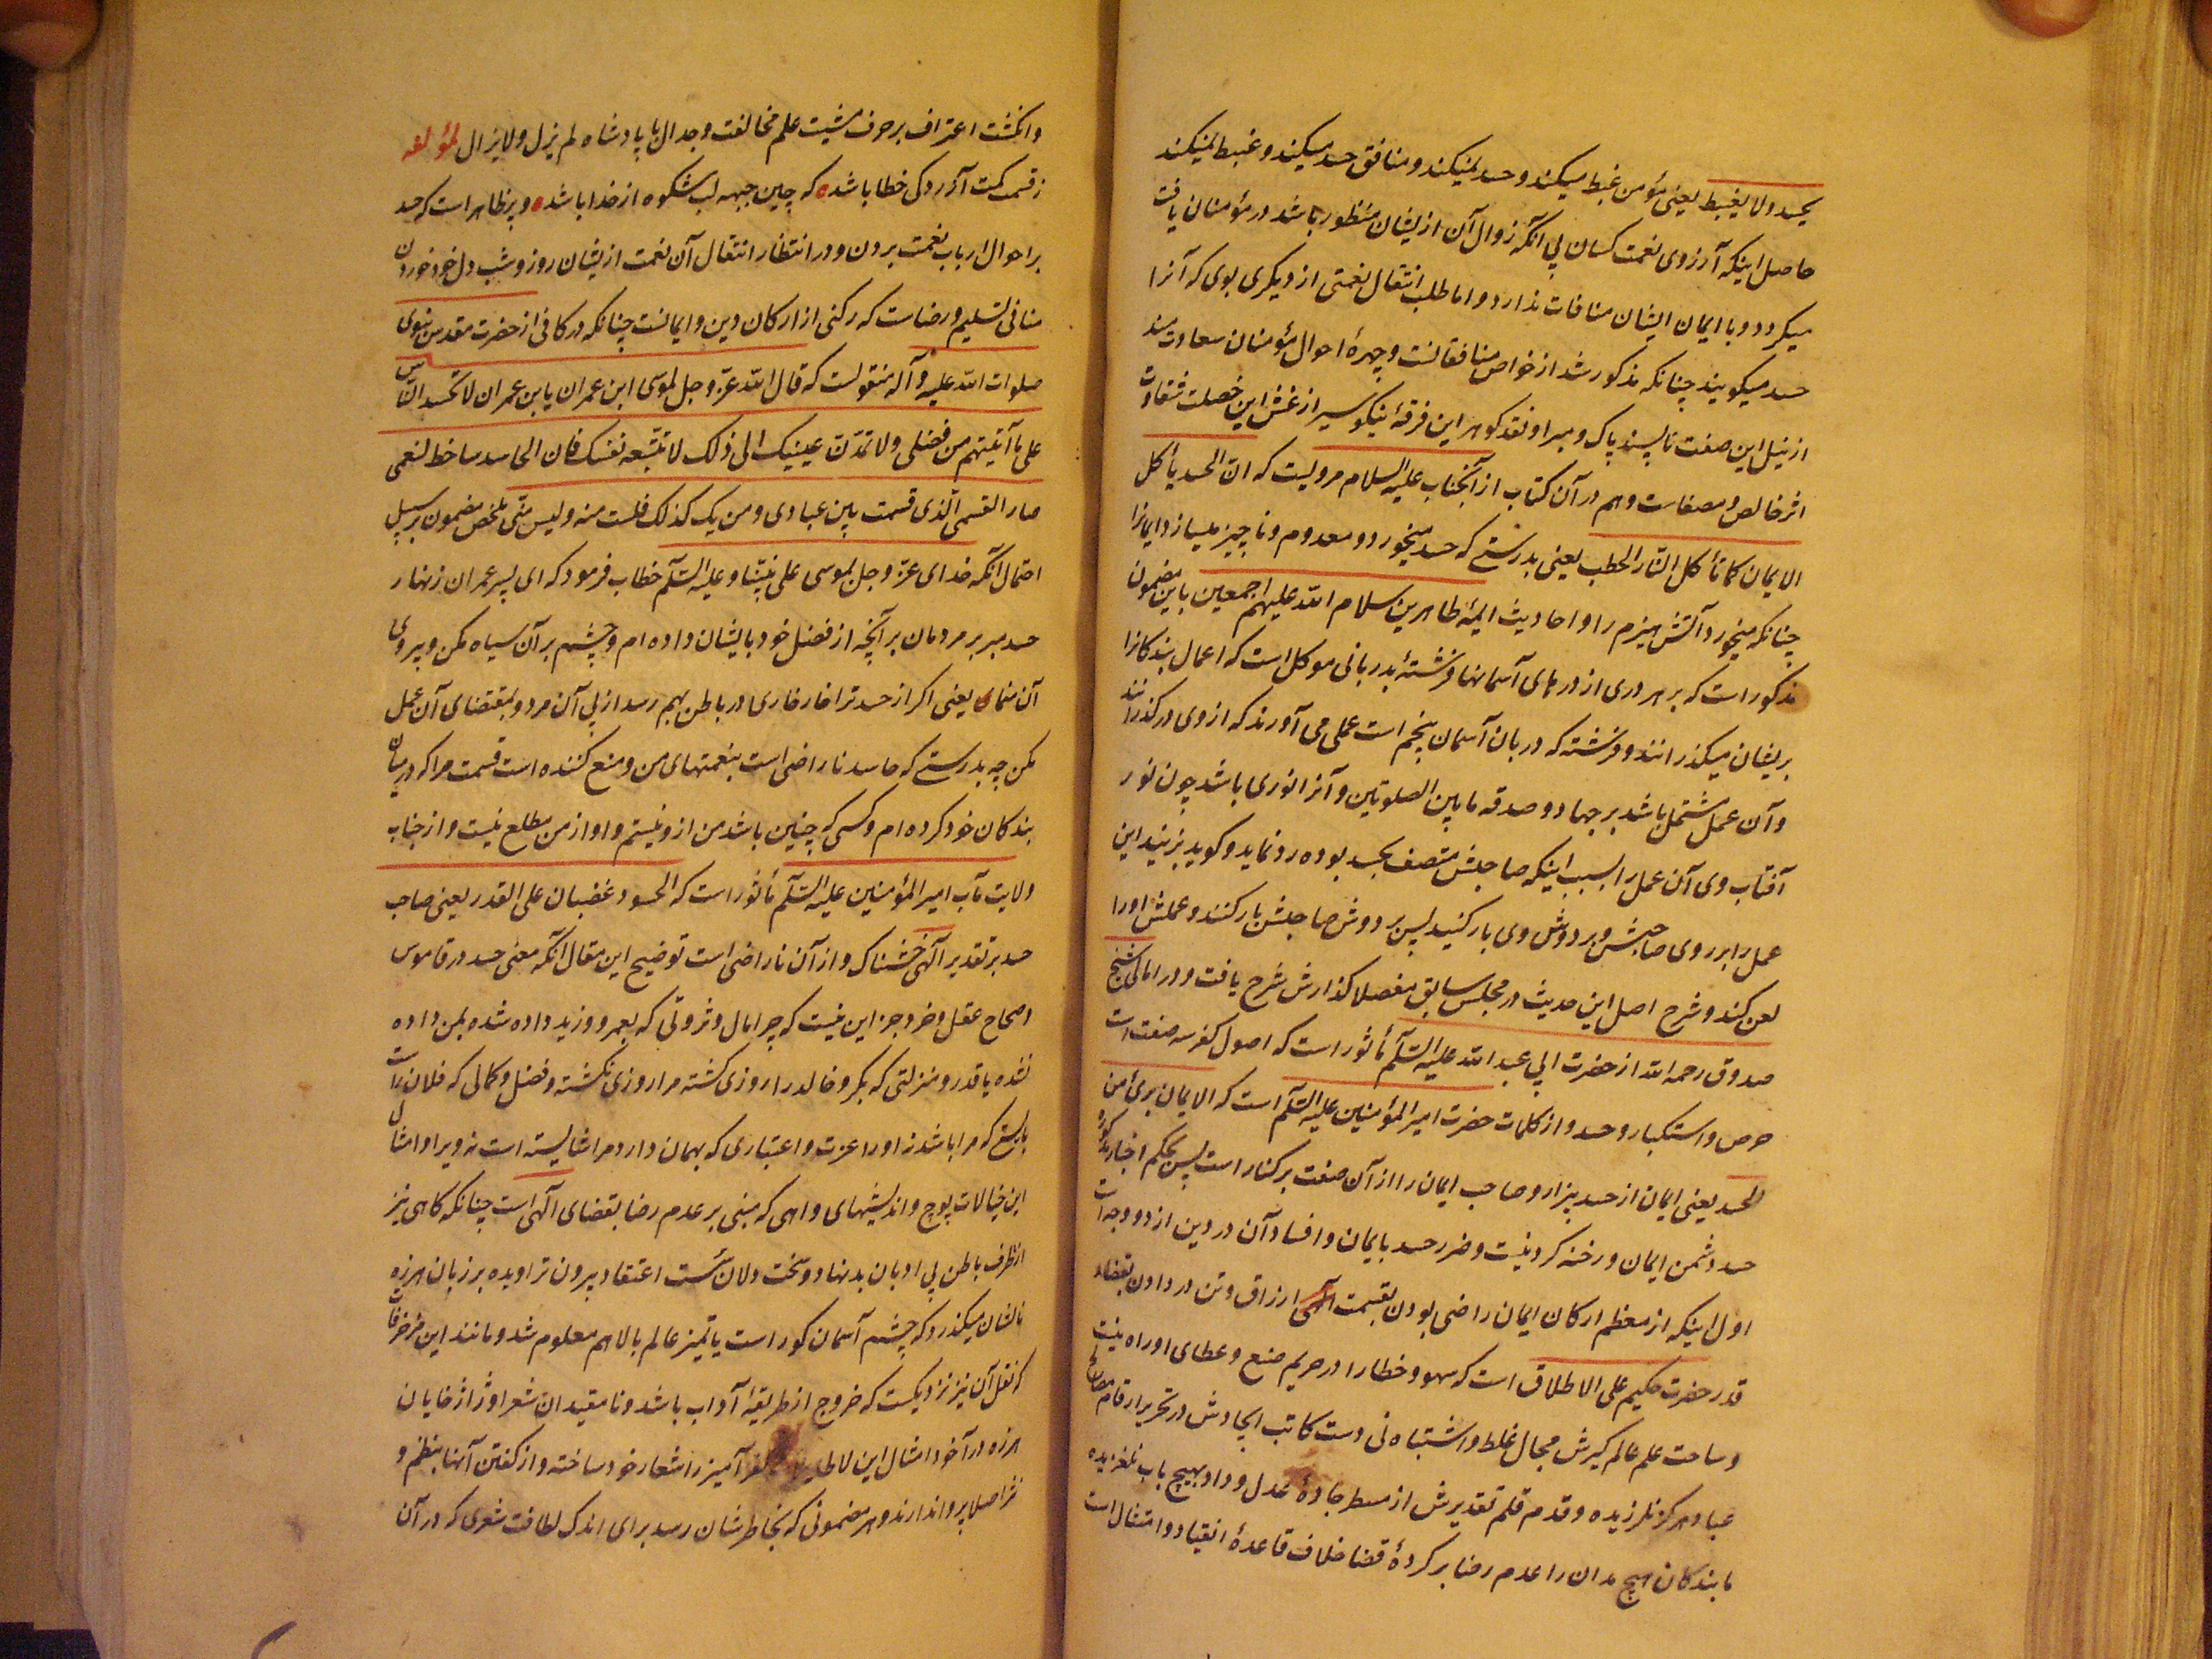 یحسد ولا یغبط یعنی مؤمن غبط میکند و حسد نمیکند و منافق حسد میکند و غبط نمیکند
حاصل اینکه آرزوی نعمت کسان بی آنکه زوال آن ازیشان منظور باشد در مؤمنان یافت
میکردد و با ایمان ایشان منافات ندارد و اما طلب انتقال نعمتی از دیکری بوی که آنرا
حسد میکویند چنانکه مذکور شد از خواص منافقانست و چهرهٔ احوال مؤمنان سعادت مند
از نیل این صفت ناپسند پاک و مبرا و نقد کوهر این فرقهٔ نیکو سیر از غش این خصلت شقاوت
اثر خالص و مصفاست و هم در آن کتاب از آنجناب علیه السلام مرویست که ان الحسد یأکل
الایمان کما تأکل النار الحطب یعنی بدرستی که حسد میخورد و معدوم و ناچیز میسازد ایمانرا
چنانکه میخورد آتش هیزم را و احادیث ایمهٔ طاهرین سلام الله علیهم اجمعین باین مضمون
مذکور است که بر هر دری از درهای آسمانها فرشتهٔ بدربانی موکل است که اعمال بندکانرا
بریشان میکذرانند و فرشته که دربان آسمان پنجم است عملی می آورند که از وی درکذرانند
و آن عمل مشتمل باشد بر جهاد و صدقه ما بین الصلوتین و آنرا نوری باشد چون نور
آفتاب وی آن عمل را بسبب اینکه صاحبش متصف بحسد بوده رد نماید و کوید بزنید این
عمل را بر روی صاحبش و بر دوش وی بار کنید پس بر دوش صاحبش بار کنند و عملش او را
لعن کند و شرح اصل این حدیث در مجلس سابق مفصلا کذارش شرح یافت و در امالی شیخ
صدوق رحمه الله از حضرت ابی عبد الله علیه السّلم مأثور است که اصول کفر سه صفت است
حرص و استکبار و حسد و از کلمات حضرت امیر المؤمنین علیه السّلم است که الایمان بریٔ من
الحسد یعنی ایمان از حسد بیزار و صاحب ایمان را از آن صفت بر کنار است پس بحکم اخبار مذکوره
حسد دشمن ایمان و رخنه کر دینست و ضرر حسد بایمان و افساد آن در دین از دو وجه است
اول اینکه از معظم ارکان ایمان راضی بودن بقسمت الهی ارزاق و تن در دادن بقضا و
قدر حضرت حکیم علی الاطلاق است که سهو و خطا را در حریم صنع و عطای او راه نیست
و ساحت علم عالم کیرش مجال غلط و اشتباه نی دست کاتب ایجادش در تحریر ارقام مصالح
عباد هرکز نلرزیده و قدم قلم تقدیرش از مسطر جادهٔ عدل و داد بهیچ باب نلغزیده
ما بندکان هیچ مدان را عدم رضا بر کردهٔ قضا خلاف قاعدهٔ انقیاد و امتثال است
و انکشت اعتراف بر حرف مشیت علم مخالفت و جدال با پادشاه لم یزل و لا یزال لمؤلفه
ز قسمت آزردکی خطا باشد که چین جبهه لب شکوه از خدا باشد و بر ظاهر است که حسد
بر احوال ارباب نعمت بردن و در انتظار انتقال آن نعمت ازیشان روز و شب دل خود خوردن
منافی تسلیم و رضاست که رکنی از ارکان دین و ایمانست چنانکه در کافی از حضرت مقدس نبوی
صلوات الله علیه و آله منقولست که قال الله عزّ و جل لموسی ابن عمران یابن عمران لا تحسد الناس
علی ما آتیتهم من فضلی ولا تمدّن عینیک الی ذلک لا تتبعه نفسک فان الحاسد ساخط لنعمی
صاد لقسمی الّذی قسمت بین عبادی و من یک کذلک فلست منه و لیس منّی ملخص مضمون بر سبیل
احتمال آنکه خدای عزّ و جل بموسی علی نبیّنا و علیه السّلم خطاب فرمود که ای پسر عمران زنهار
حسد مبر بر مردمان بر آنچه از فضل خود بایشان داده ام و چشم بر آن سیاه مکن و پیروی
آن منمای یعنی اکر از حسد ترا خارخاری در باطن بهم رسد از پی آن مرو و بمقتضای آن عمل
مکن چه بدرستی که حاسد ناراضی است بنعمتهای من و منع کننده است قسمت مرا که در میان
بندکان خود کرده ام و کسی که چنین باشد من از و نیستم و او از من مطلع نیست و از جناب
ولایت مآب امیر المؤمنین علیه السّلم مأثور است که الحسود غضبان علی القدر یعنی صاحب
حسد بر تقدیر آلهی خشمناک و از آن ناراضی است توضیح این مقال آنکه معنی حسد در قاموس
و صحاح عقل و خرد جز این نیست که چرا مال و ثروتی که بعمرو و زید داده شده بمن داده
نشده یا قدر و منزلتی که بکر و خالد را روزی کشته مرا روزی نکشته و فضل و کمالی که فلان راست
بایستی که مرا باشد نه او را عزت و اعتباری که بهمان دارد مرا شایسته است نه ویرا و امثال
این خیالات پوچ و اندیشهای واهی که مبنی بر عدم رضا بقضای آلهی است چنانکه کاهی نیز
از ظرف باطن بی ادبان بدنهاد و سخت دلان سست اعتقاد بیرون تراویده بر زبان هرزه
نالشان میکذرد که چشم آسمان کور است یا تمیز عالم بالا هم معلوم شد و مانند این مزخرفات
که نقل آن نیز نزدیکست که خروج از طریقهٔ آداب باشد و نا مقیدان شعرا و ژاژخایان
هرزه درا خود امثال این لاطایل کفر آمیز را شعار خود ساخته و از کفتن آنها بنظم و
نثر اصلا پروا ندارند و هر مضمونی که بخاطرشان رسد برای اندک لطافت شعری که در آن